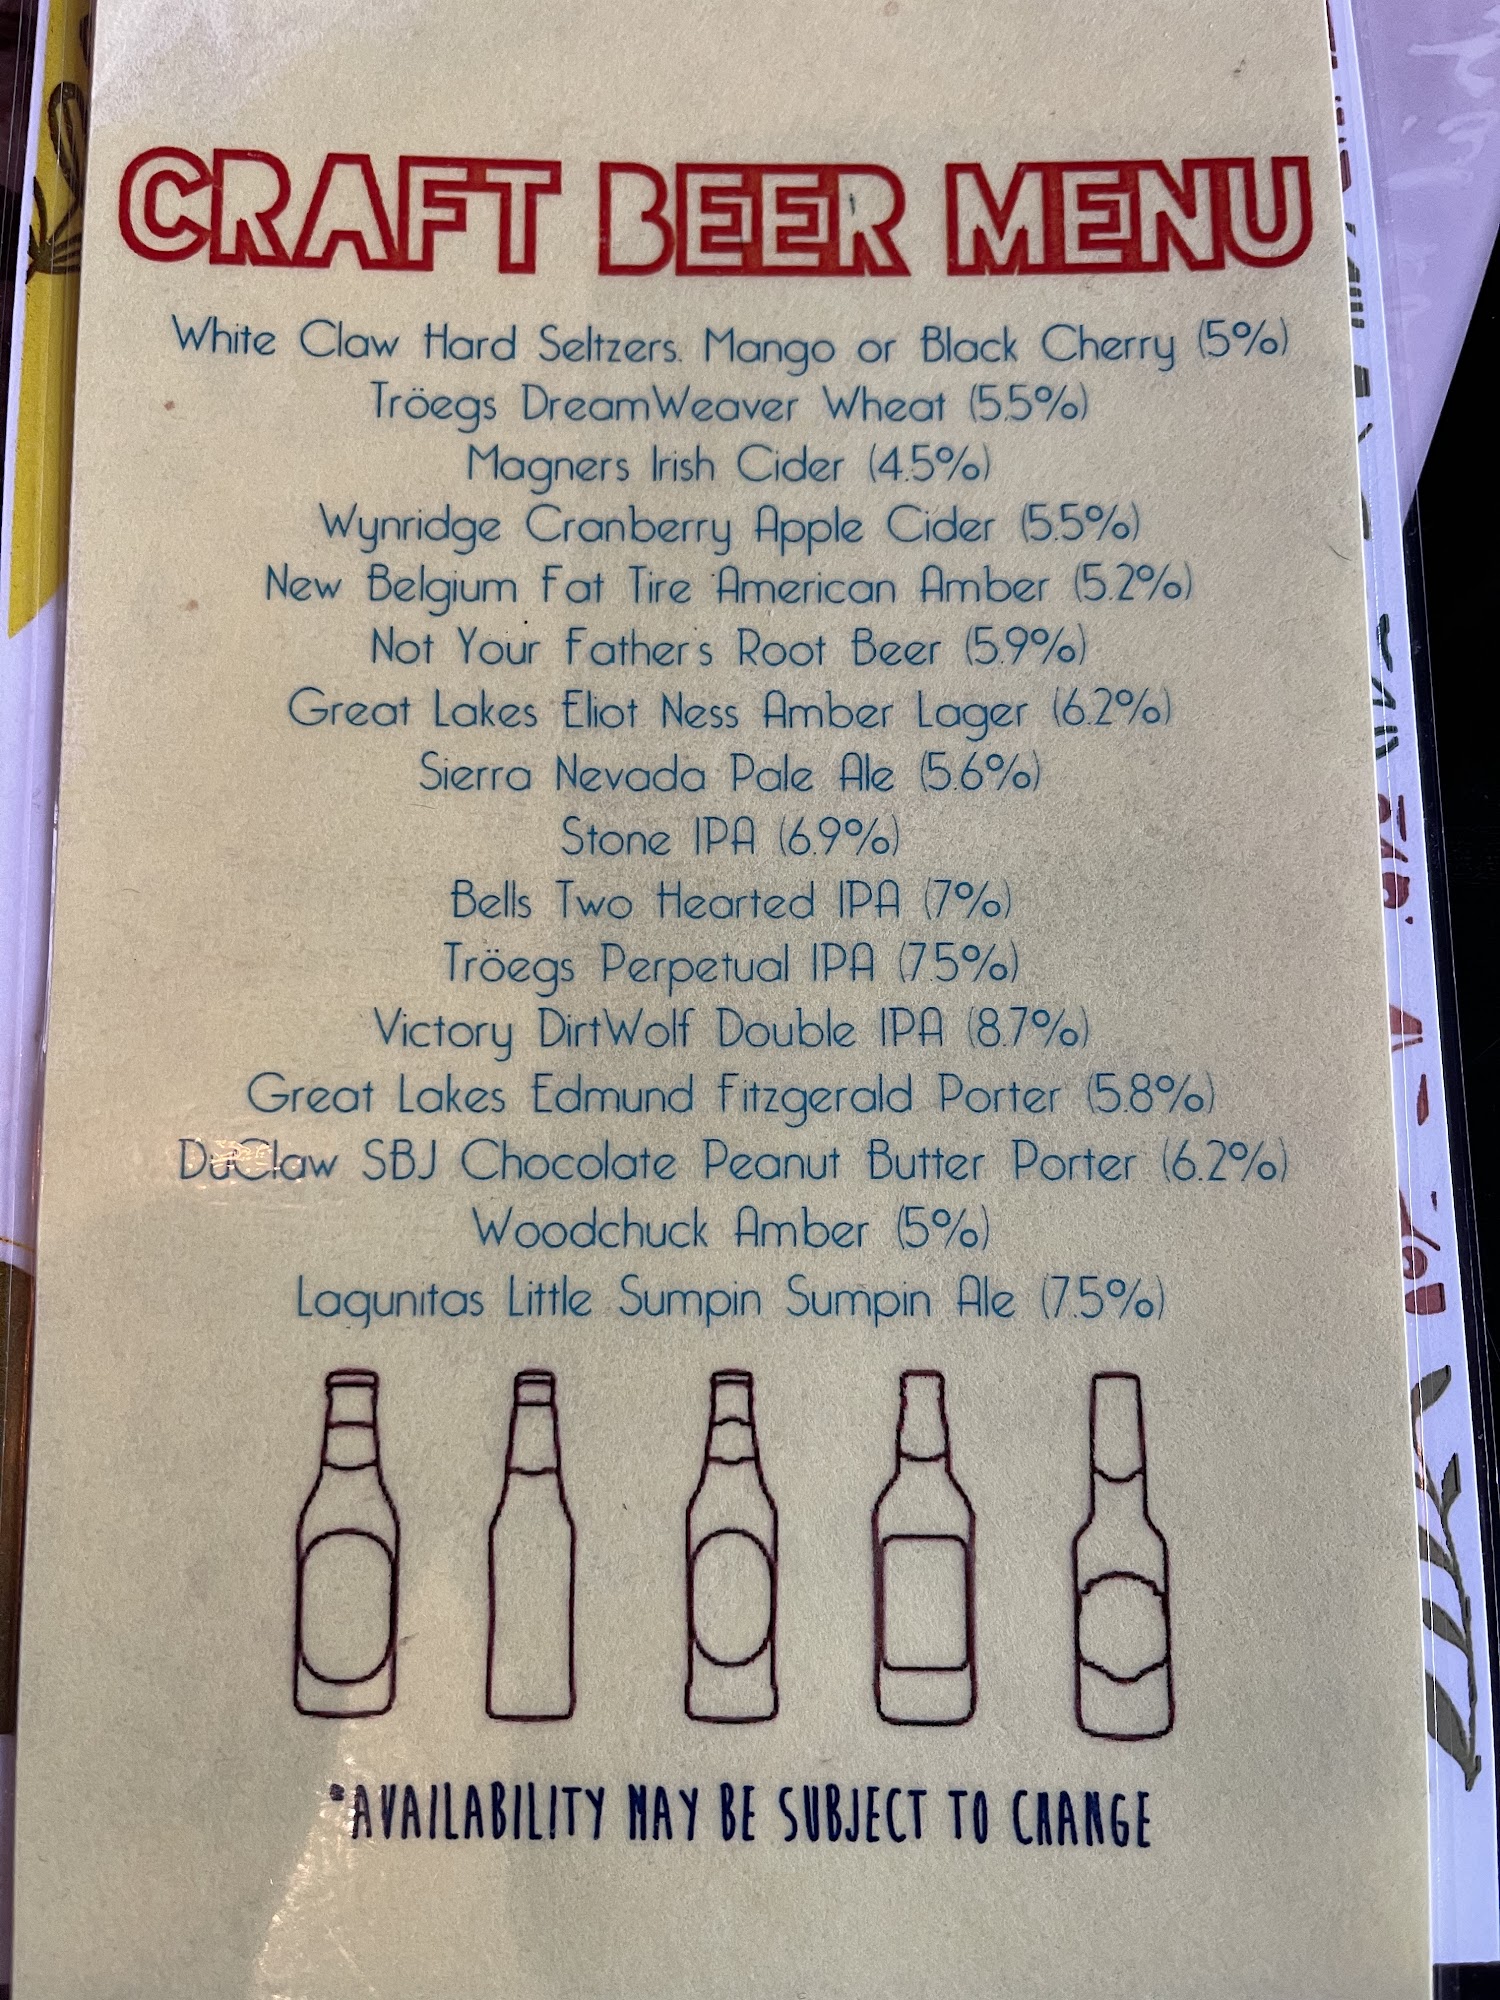 CRAFT BEER MENU
White Claw Hard Seltzers. Mango or Black Cherry (5%)
Tröegs DreamWeaver Wheat (5.5%)
Magners Irish Cider (4.5%)
Wynridge Cranberry Apple Cider (5.5%)
New Belgium Fat Tire American Amber (5.2%)
Not Your Father's Root Beer (5.9%)
Great Lakes Eliot Ness Amber Lager (6.2%)
Sierra Nevada Pale Ale (5.6%)
Stone IPA (6.9%)
Bells Two Hearted IPA (7%)
Tröegs Perpetual IPA (7.5%)
Victory DirtWolf Double IPA (8.7%)
Great Lakes Edmund Fitzgerald Porter (5.8%)
DuClaw SBJ Chocolate Peanut Butter Porter (6.2%)
Woodchuck Amber (5%)
Lagunitas Little Sumpin Sumpin Ale (7.5%)
*AVAILABILITY MAY BE SUBJECT TO CHANGE